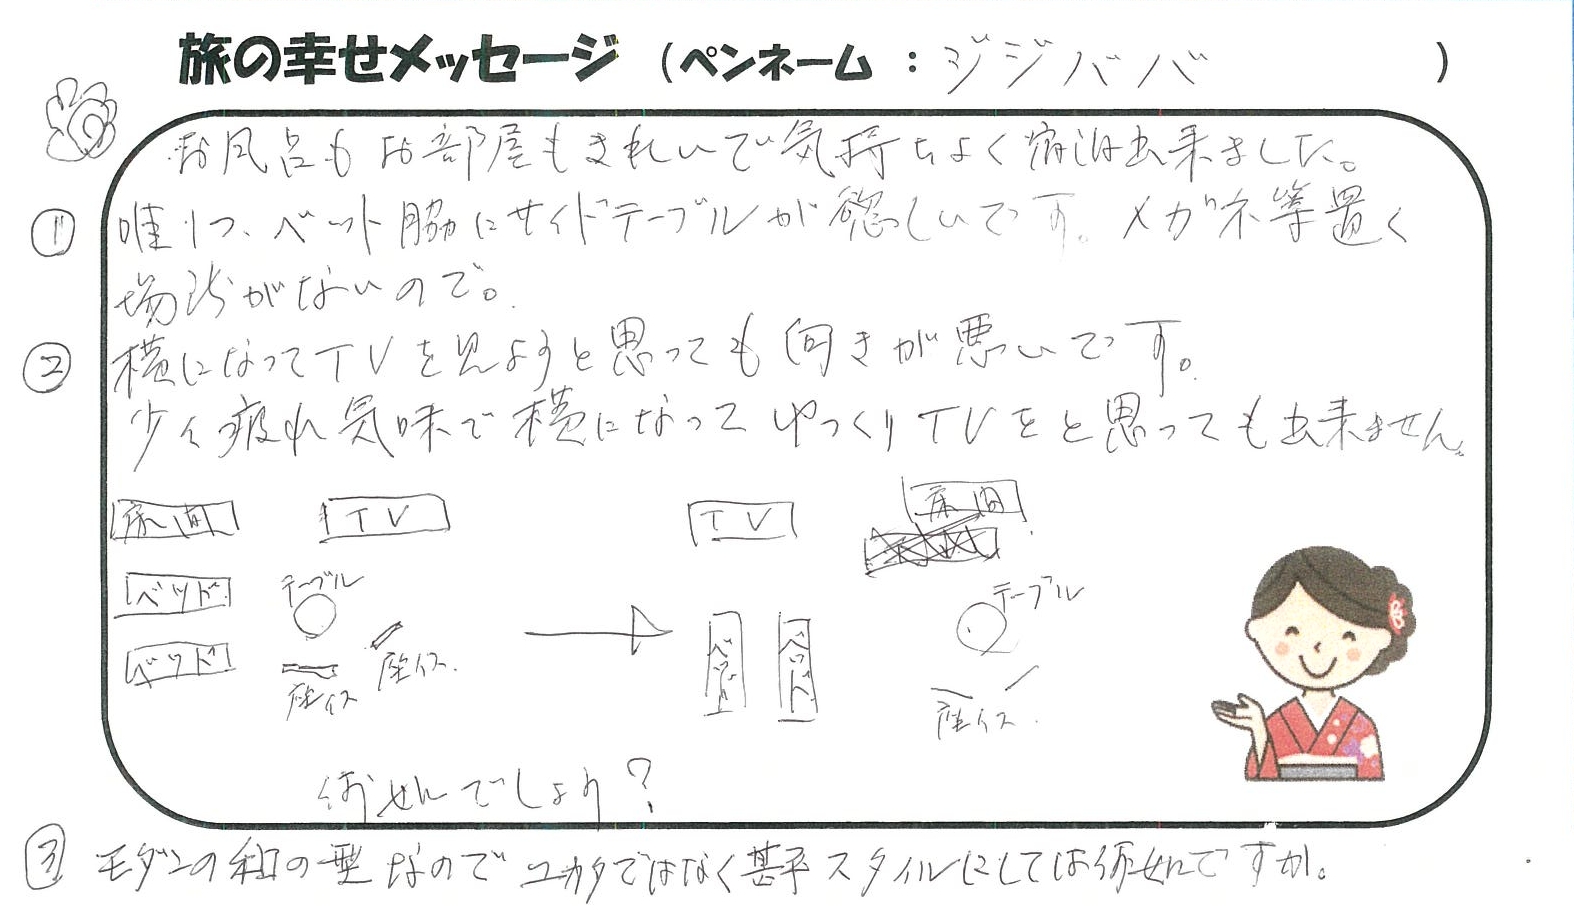 旅の幸せメッセージ (ペンネーム : ジジババ )
お風呂もお部屋もきれいで気持ちよく宿泊出来ました。
① 唯1つ、ベット脇にサイドテーブルが欲しいです。メガネ等置く
場所がないので。
② 横になってTVを見ようと思っても向きが悪いです。
少々疲れ気味で横になってゆっくりTVをと思っても出来ません。
床間 TV TV 床間
ベッド テーブル テーブル
ベッド 座イス 座イス ベッド ベッド 座イス
如何でしょう?
③ モダンの和の型なのでユカタではなく甚平スタイルにしては如何ですか。